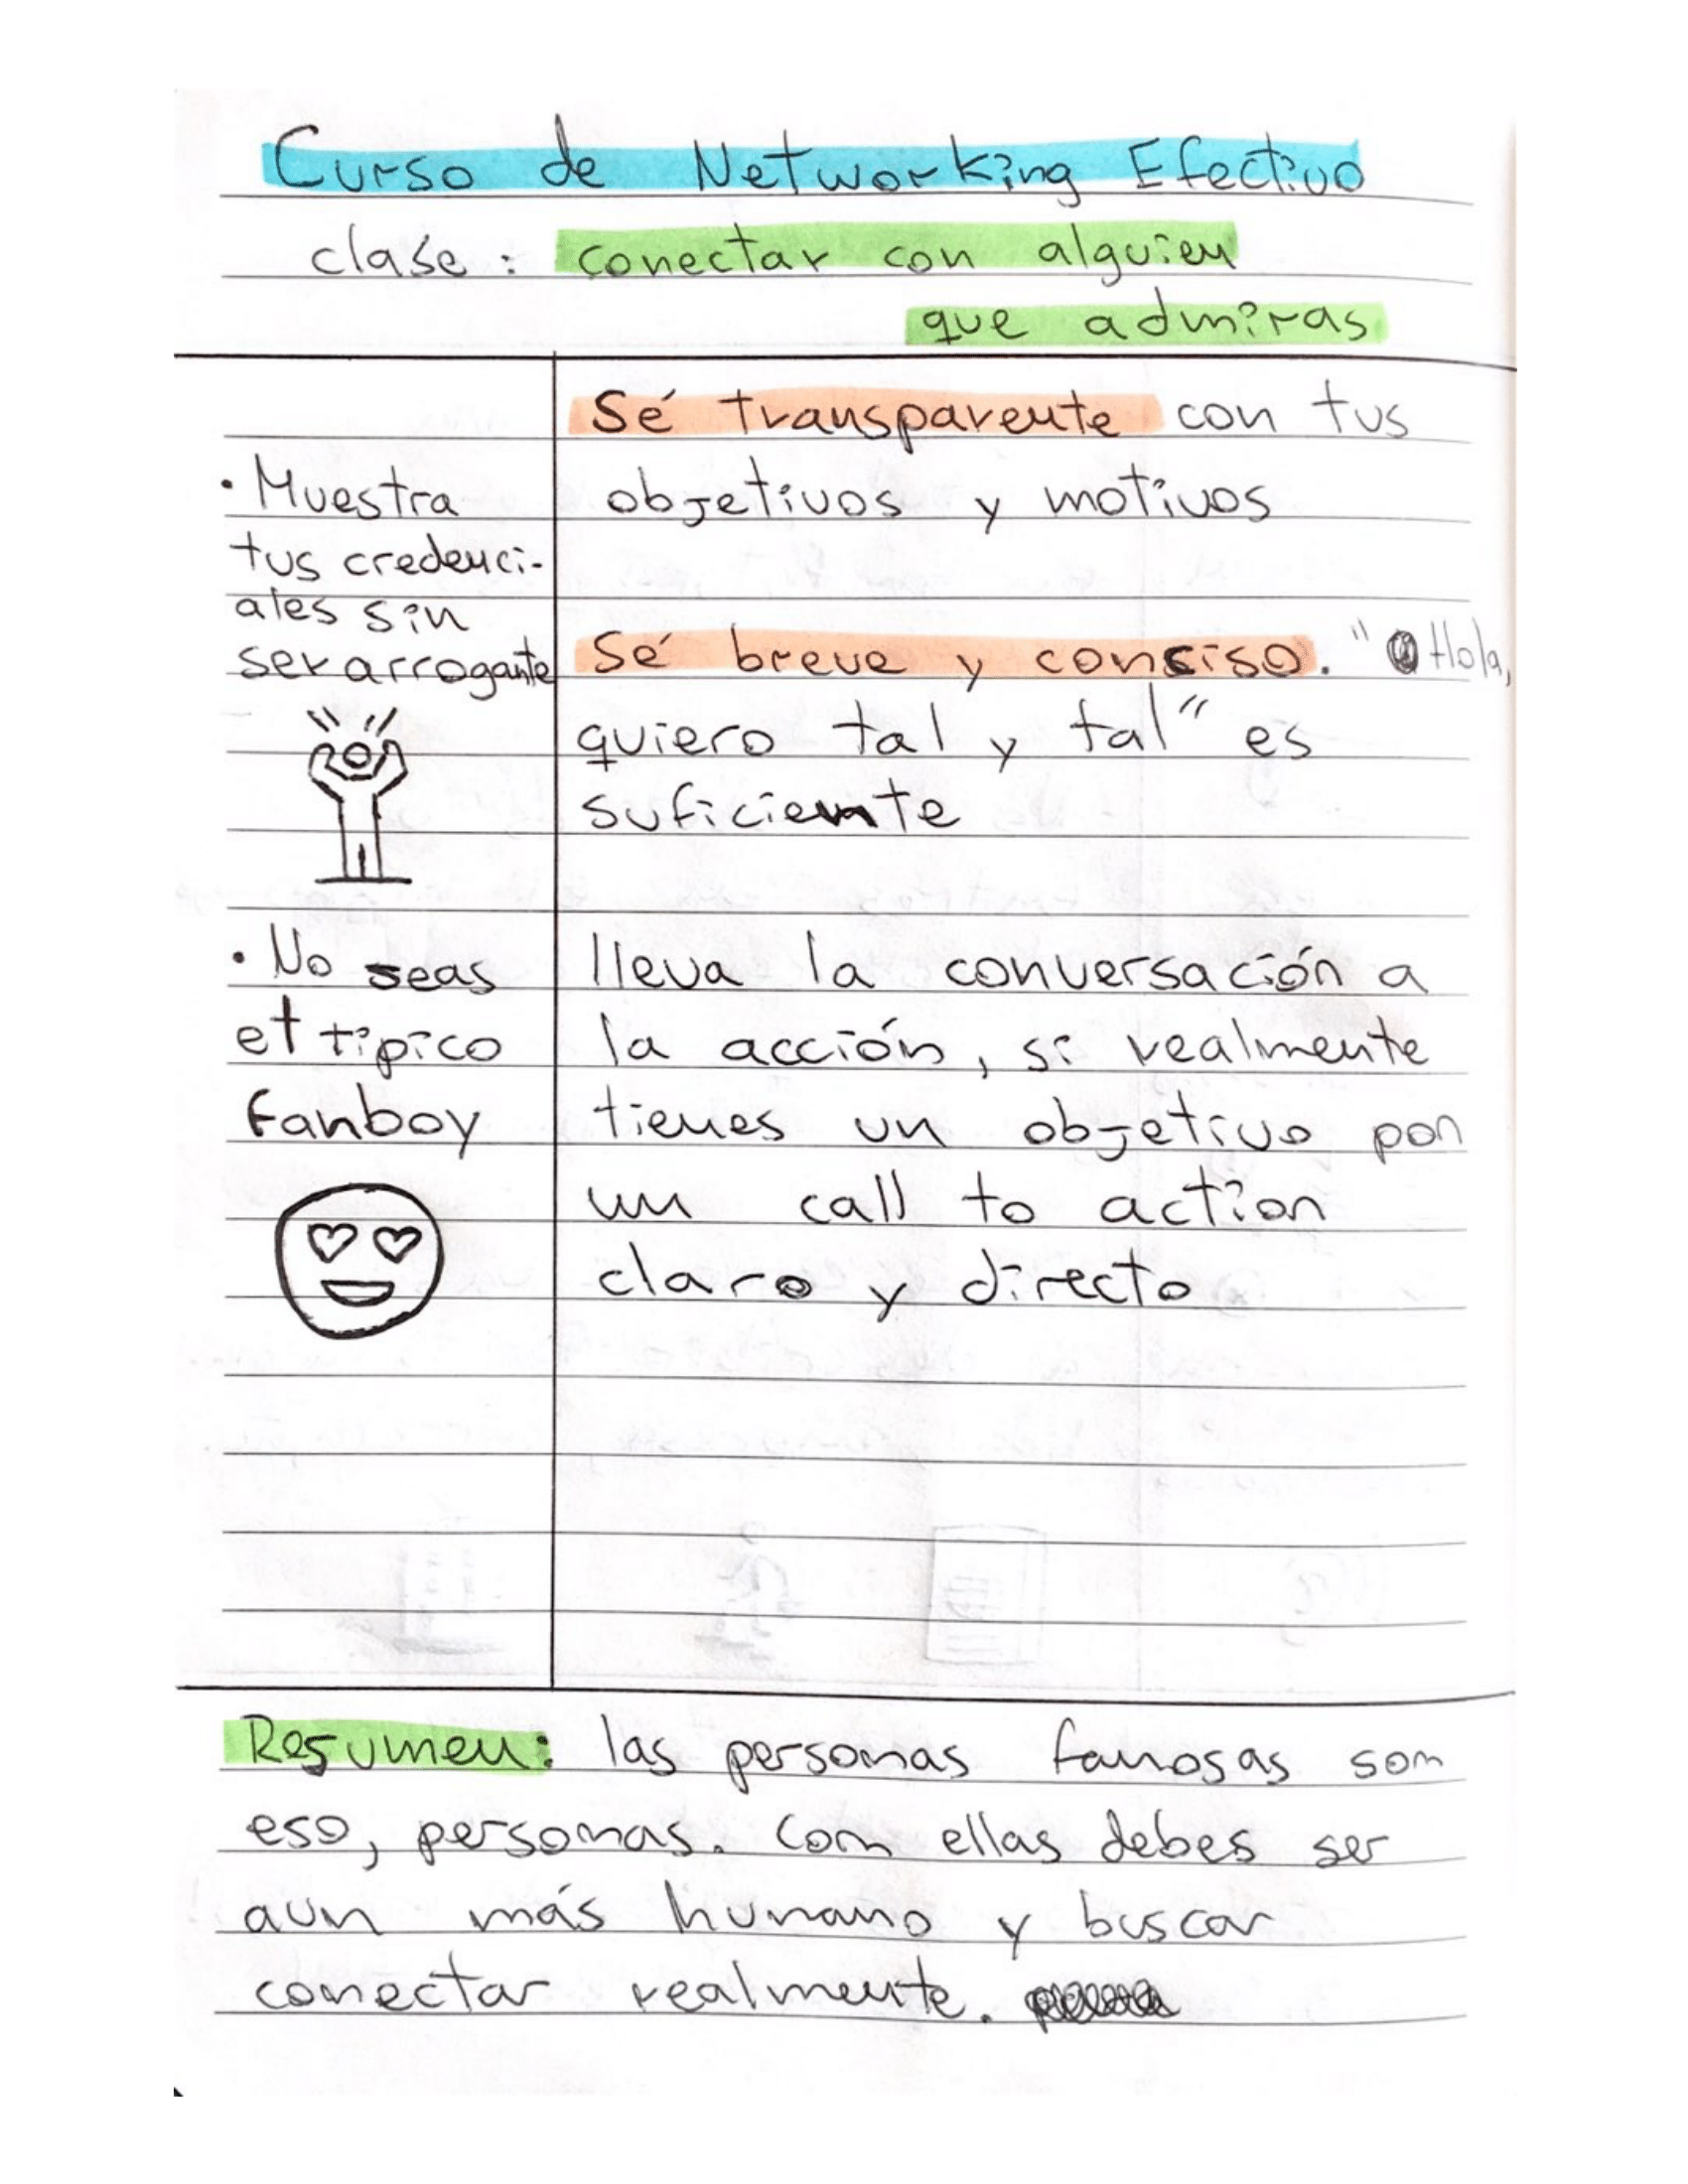 Curso de Networking Efectivo
clase: conectar con alguien
que admiras
• Muestra
tus credenci-
ales sin
ser arrogante
• No seas
el tipico
fanboy
Sé transparente con tus
objetivos y motivos
Sé breve y consiso. "Hola,
quiero tal y tal" es
suficiente
lleva la conversación a
la acción, si realmente
tienes un objetivo pon
un call to action
claro y directo
Resumen: las personas famosas son
eso, personas. Con ellas debes ser
aun más humano y buscar
conectar realmente.